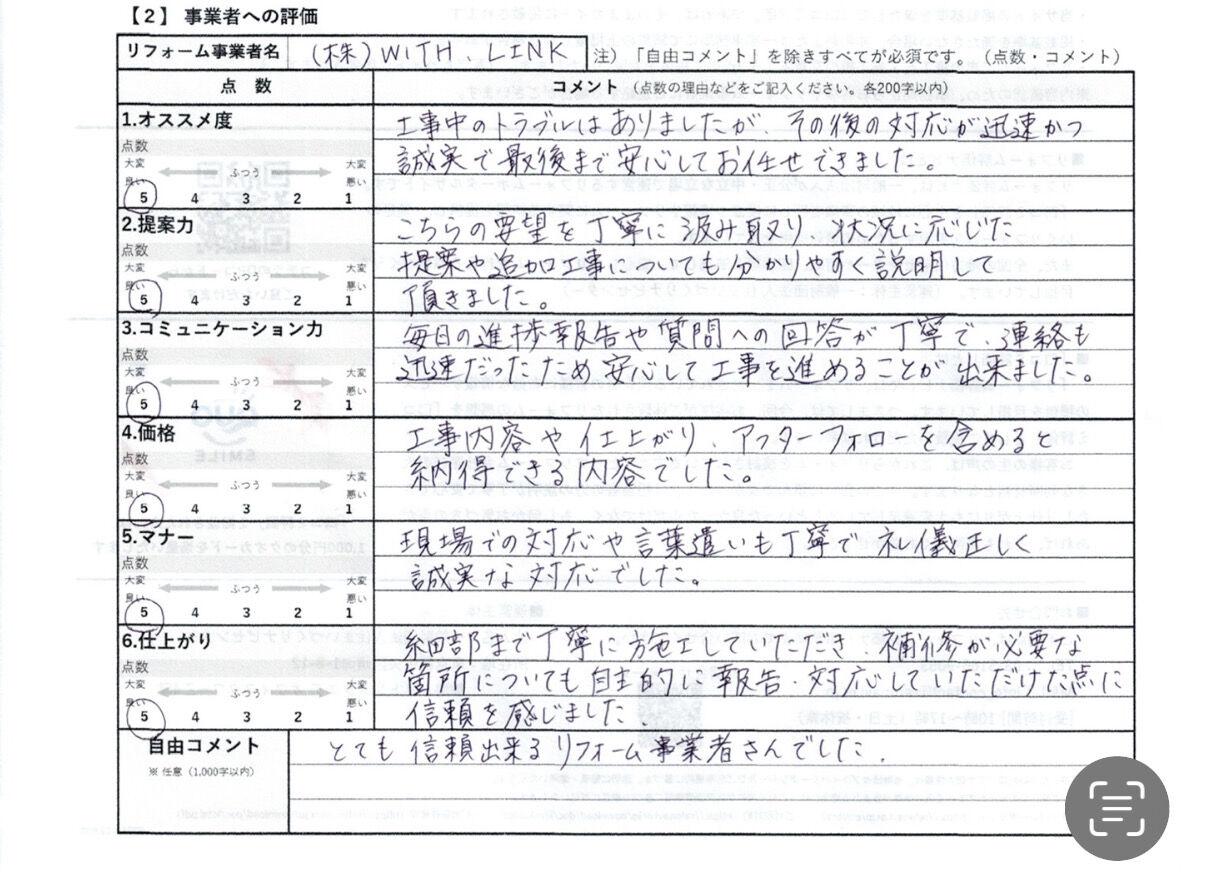 【2】 事業者への評価
リフォーム事業者名 (株)WITH.LINK 注）「自由コメント」を除きすべてが必須です。（点数・コメント）
点 数 コメント （点数の理由などをご記入ください。各200字以内）
1.オススメ度
点数
大変良い ふつう 大変悪い
5 4 3 2 1
工事中のトラブルはありましたが、その後の対応が迅速かつ
誠実で最後まで安心してお任せできました。
2.提案力
点数
大変良い ふつう 大変悪い
5 4 3 2 1
こちらの要望を丁寧に汲み取り、状況に応じた
提案や追加工事についても分かりやすく説明して
頂きました。
3.コミュニケーション力
点数
大変良い ふつう 大変悪い
5 4 3 2 1
毎日の進捗報告や質問への回答が丁寧で、連絡も
迅速だったため安心して工事を進めることが出来ました。
4.価格
点数
大変良い ふつう 大変悪い
5 4 3 2 1
工事内容や仕上がり、アフターフォローを含めると
納得できる内容でした。
5.マナー
点数
大変良い ふつう 大変悪い
5 4 3 2 1
現場での対応や言葉遣いも丁寧で礼儀正しく
誠実な対応でした。
6.仕上がり
点数
大変良い ふつう 大変悪い
5 4 3 2 1
細部まで丁寧に施工していただき、補修が必要な
箇所についても自主的に報告・対応していただけた点に
信頼を感じました.
自由コメント
※ 任意（1,000字以内）
とても信頼出来るリフォーム事業者さんでした.